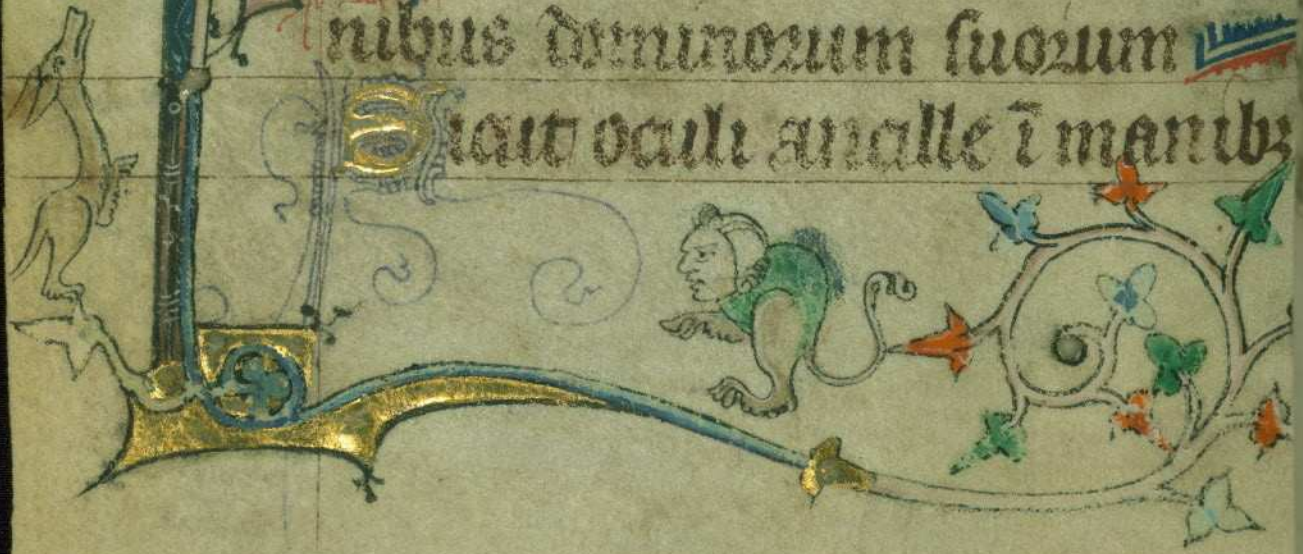 nibus dominorum suorum
Sicut oculi ancille ī manibꝫ